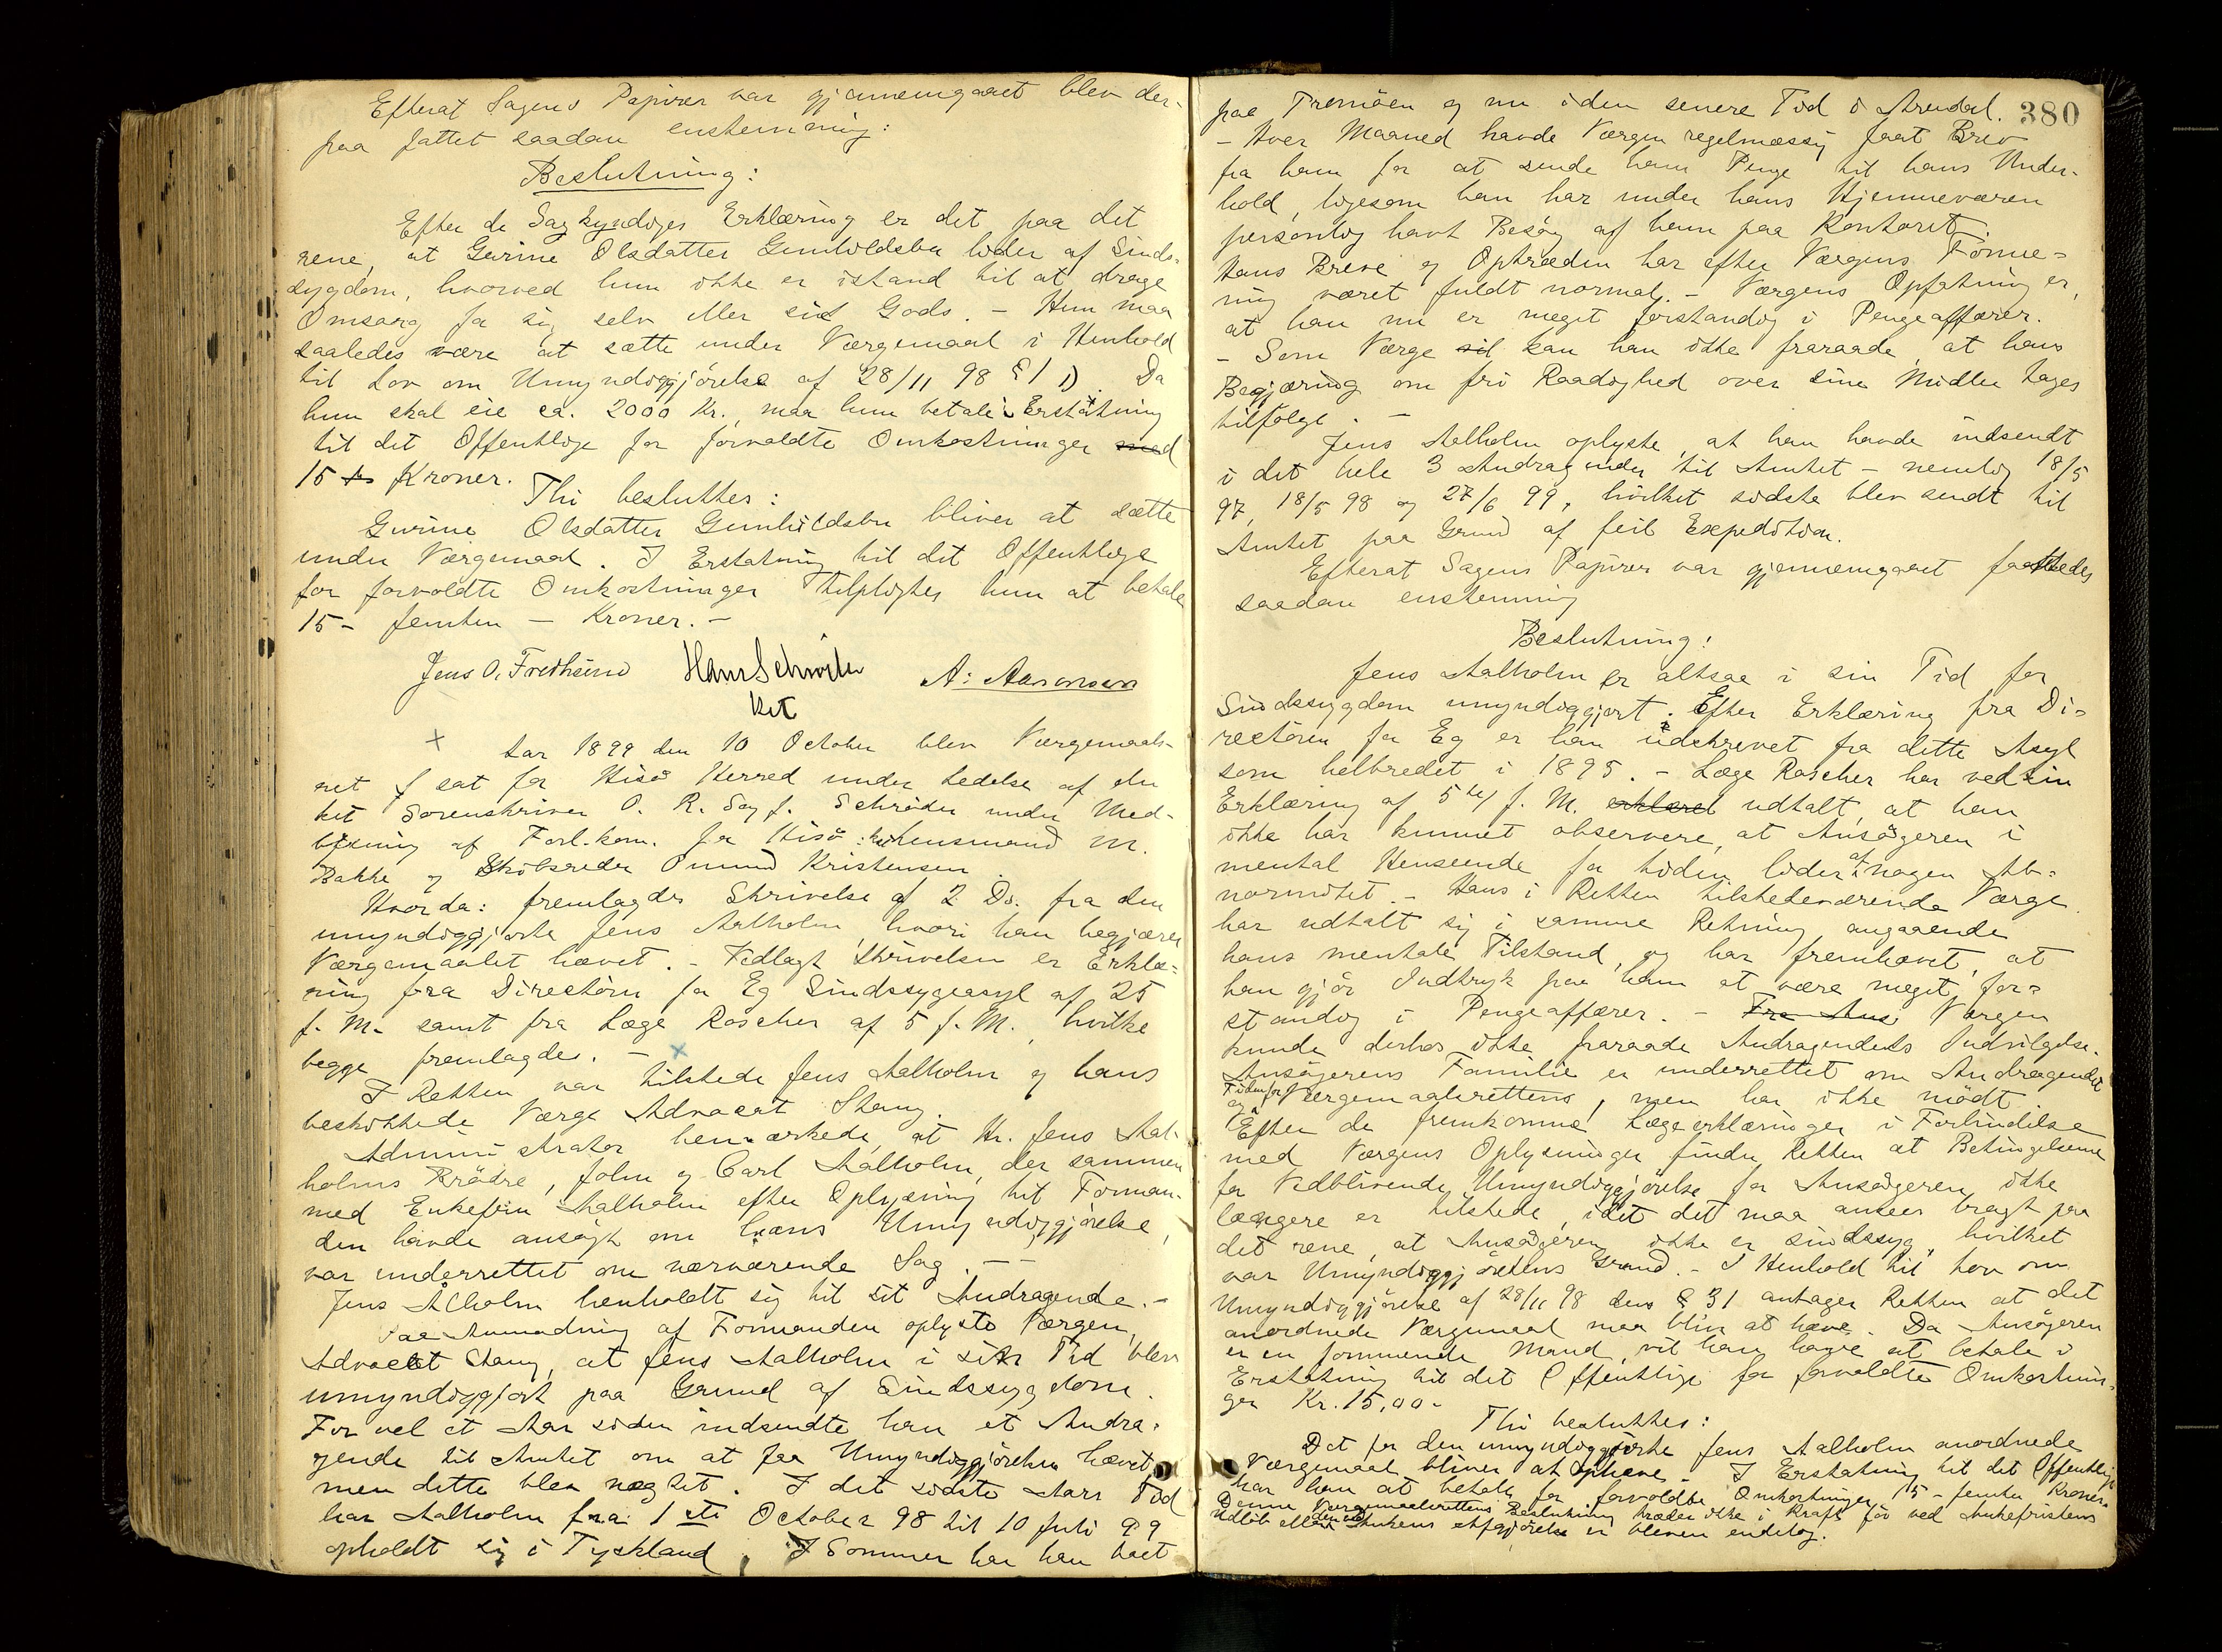 Efterat Sagens Papirer var gjennemgaaet blev der-
paa fattet saadan enstemmig:
Beslutning:
Efter de Sagkyndiges Erklæring er det paa det
rene, at Gurine Olsdatter Gunhildsbu lider af Sinds-
sygdom, hvorved hun ikke er istand til at drage
Omsorg for sig selv eller sit Gods. - Hun maa
saaledes være at sætte under Værgemaal i Henhold
til Lov om Umyndiggjørelse af 28/11 98 § 1 1). Da
hun skal eie ca. 2000 Kr., maa hun betale i Erstatning
til det Offentlige for forvoldte Omkostninger med
15 Kroner.
Thi besluttes:
Gurine Olsdatter Gunhildsbu bliver at sætte
under Værgemaal. I Erstatning til det Offentlige
for forvoldte Omkostninger tilpligtes hun at betale
15 - femten - Kroner. -
Jens O. Fredlund Hans Schrøder A. Aanonsen
kst
Aar 1899 den 10 October blev Værgemaals-
ret sat for Hisø Herred under Ledelse af den
kst Sorenskriver O. R. Sagf. Schrøder under Med-
virkning af Forl.kom. for Hisø: Lensmand M.
Bakke og Skibsreder Omund Kristensen.
Hvorda: fremlagdes Skrivelse af 2 Ds. fra den
umyndiggjorte Jens Aalholm, hvori han begjærer
Værgemaalet hævet. - Vedlagt Skrivelsen er Erklæ-
ring fra Directøren for Eg Sindssygeasyl af 25
f. M. samt fra Læge Roscher af 5 f. M., hvilke
begge fremlagdes. -
I Retten var tilstede Jens Aalholm og hans
beskikkede Værge Advocat Stang.
Administrator bemærkede, at Hr. Jens Aal-
holms Brödre, John og Carl Aalholm, der sammen
med Enkefru Aalholm efter Oplysning til Forman-
den havde ansøgt om hans Umyndiggjørelse,
var underrettet om nærværende Sag. -
Jens Alholm henholdt sig til sit Andragende. -
Paa Anmodning af Formanden oplyste Værgen,
Advocat Stang, at Jens Aalholm i sin Tid blev
umyndiggjort paa Grund af Sindssygdom.
For vel et Aar siden indsendte han et Andra-
gende til Amtet om at faa Umyndiggjørelsen hævet,
men dette blev nægtet. I det sidste Aars Tid
har Aalholm fra 1ste October 98 til 10 Juli 99
opholdt sig i Tyskland. I Sommer har han boet
380
paa Tromöen og nu i den senere Tid i Arendal.
- Hver Maaned havde Værgen regelmæssig faat Brev
fra ham for at sende ham Penge til hans Under-
hold, ligesom han har under hans Hjemmeværen
personlig havt Besög af ham paa Kontoret.
Hans Breve og Optræden har efter Værgens Forme-
ning været fuldt normal. - Værgens Opfatning er,
at han nu er meget forstandig i Pengeaffærer.
- Som Værge kan han ikke fraraade, at hans
Begjæring om fri Raadighed over sine Midler tages
tilfölge. -
Jens Aalholm oplyste, at han havde indsendt
i det hele 3 Andragender til Amtet - nemlig 18/5
97, 18/5 98 og 27/6 99, hvilket sidste blev sendt til
Amtet paa Grund af feil Expedition.
Efterat Sagens Papirer var gjennemgaaet fattedes
saadan enstemmig
Beslutning:
Jens Aalholm er altsaa i sin Tid for
Sindssygdom umyndiggjort. Efter Erklæring fra Di-
rectören for Eg er han udskrevet fra dette Asyl
som helbredet i 1895. - Læge Roscher har ved sin
Erklæring af 5te f. M. erklæret udtalt, at han
ikke har kunnet observere, at Ansögeren i
mental Henseende for tiden lider af nogen Ab-
normitet. - Hans i Retten tilstedeværende Værge
har udtalt sig i samme Retning angaaende
hans mentale Tilstand, og har fremhævet, at
han gjör Indtryk paa ham at være meget for-
standig i Pengeaffærer. - Fra Ans Værgen
kunde derhos ikke fraraade Andragendets Indvilgelse.
Ansögerens Familie er underrettet om Andragendet
og Tiden for Værgemaalsrettens, men har ikke mödt.
Efter de fremkomne Lægeerklæringer i Forbindelse
med Værgens Oplysninger finder Retten at Betingelserne
for Vedblivende Umyndiggjørelse for Ansögeren ikke
længere er tilstede, idet det maa ansees bragt paa
det rene, at Ansögeren ikke er sindssyg, hvilket
var Umyndiggjörelsens Grund. - I Henhold til Lov om
Umyndiggjörelse af 28/11 98 dens § 31 antager Retten at det
anordnede Værgemaal maa blive at hæve. Da Ansögeren
er en formuende Mand, vil han have at betale i
Erstatning til det Offentlige for forvoldte Omkostnin-
ger Kr. 15,00.
Thi besluttes:
Det for den umyndiggjorte Jens Aalholm anordnede
Værgemaal bliver at ophæve. - I Erstatning til det Offentlige
har han at betale for forvoldte Omkostninger 15 - femten Kroner.
Denne Værgemaalsrettens Beslutning træder ikke i Kraft för ved Ankefristens
Udlöb eller den ved Ankens Afgjörelse er bleven endelig.